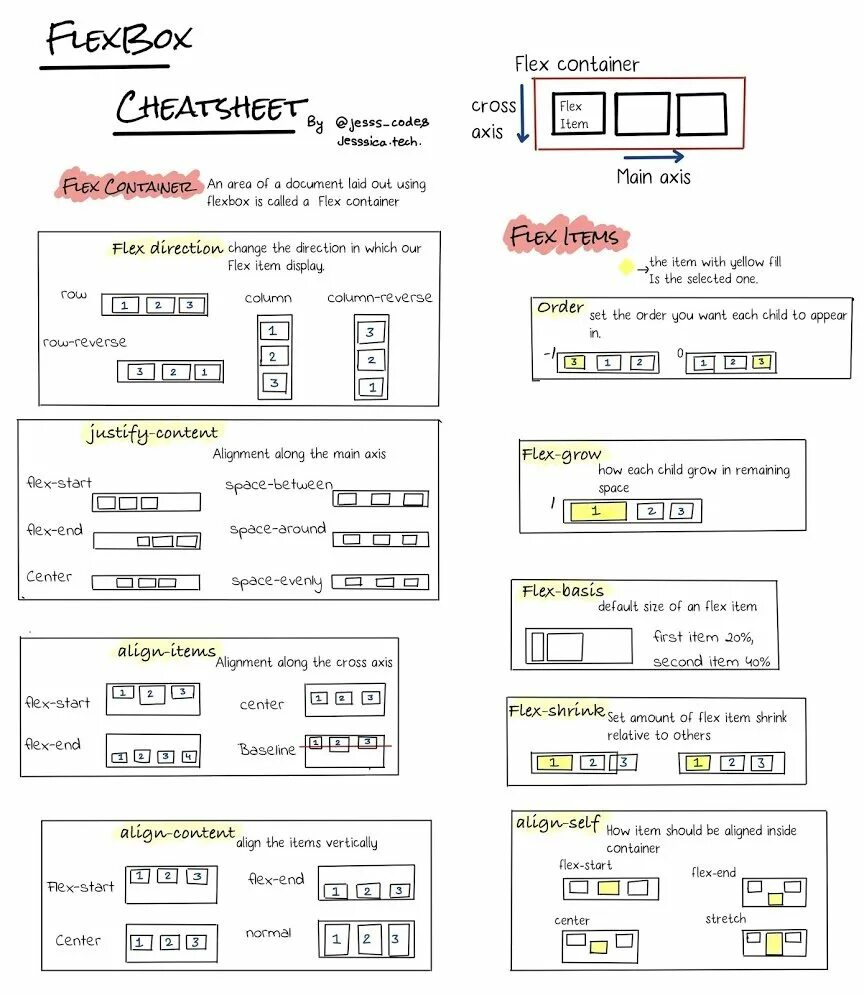 FlexBox
Cheatsheet
By @jesss_codes
jesssica.tech.
Flex container
cross
axis
Flex
Item
Main axis
Flex Container
An area of a document laid out using
flexbox is called a Flex container
Flex direction change the direction in which our
Flex item display.
row
1 2 3
row-reverse
3 2 1
column
1
2
3
column-reverse
3
2
1
justify-content
Alignment along the main axis
flex-start
flex-end
Center
space-between
space-around
space-evenly
align-items
Alignment along the cross axis
flex-start
1 2 3
flex-end
1 2 3 4
center
1 2 3
Baseline
1 2 3
align-content
align the items vertically
Flex-start
1 2 3
Center
1 2 3
flex-end
1 2 3
normal
1 2 3
Flex Items
the item with yellow fill
Is the selected one.
Order
set the order you want each child to appear
in.
-1
3 1 2
0
1 2 3
Flex-grow
how each child grow in remaining
space
1
1 2 3
Flex-basis
default size of an flex item
first item 20%,
second item 40%
Flex-shrink
Set amount of flex item shrink
relative to others
1 2 3
1 2 3
align-self
How item should be aligned inside
container
flex-start
flex-end
center
stretch